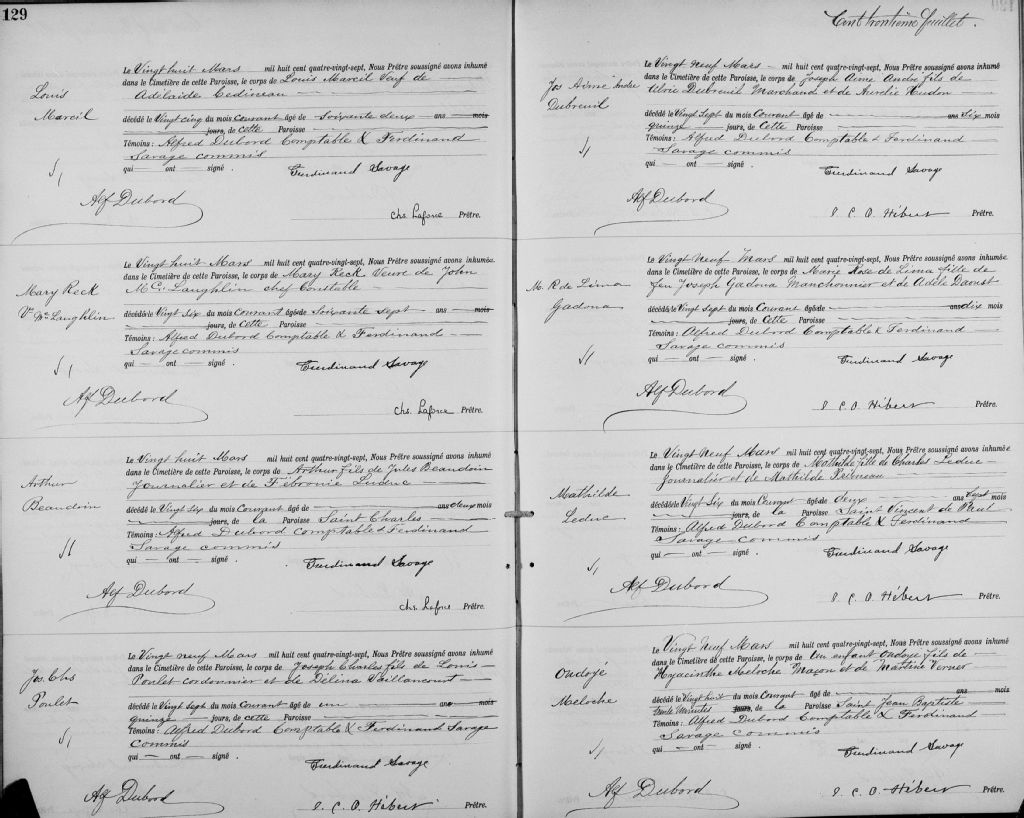 129
Louis
Marcil
Le Vingt huit Mars mil huit cent quatre-vingt-sept, Nous Prêtre soussigné avons inhumé
dans le Cimetière de cette Paroisse, le corps de Louis Marcil Veuf de
Adélaide Cedineau
décédé le Vingt cinq du mois Courant âgé de Soixante deux ans mois
jours, de cette Paroisse
Témoins: Alfred Dubord Comptable & Ferdinand
Savage commis
qui — ont — signé . Ferdinand Savage
Alf Dubord
Chs. Laforce Prêtre.
Mary Reck
Ve McLaughlin
Le Vingt huit Mars mil huit cent quatre-vingt-sept, Nous Prêtre soussigné avons inhumé
dans le Cimetière de cette Paroisse, le corps de Mary Reck Veuve de John
McLaughlin chef Constable
décédé le Vingt Six du mois Courant âgé de Soixante sept ans mois
jours, de Cette Paroisse
Témoins: Alfred Dubord Comptable & Ferdinand
Savage commis
qui — ont — signé . Ferdinand Savage
Alf Dubord
Chs. Laforce Prêtre.
Arthur
Beaudoin
Le Vingt huit Mars mil huit cent quatre-vingt-sept, Nous Prêtre soussigné avons inhumé
dans le Cimetière de cette Paroisse, le corps de Arthur fils de Jules Beaudoin
Journalier et de Fébronie Leduc
décédé le Vingt Six du mois Courant âgé de ans deux mois
jours, de la Paroisse Saint Charles
Témoins: Alfred Dubord Comptable & Ferdinand
Savage commis
qui — ont — signé . Ferdinand Savage
Alf Dubord
Chs. Laforce Prêtre.
Jos. Chs
Poulet
Le Vingt neuf Mars mil huit cent quatre-vingt-sept, Nous Prêtre soussigné avons inhumé
dans le Cimetière de cette Paroisse, le corps de Joseph Charles fils de Louis
Poulet cordonnier et de Délina Vaillancourt
décédé le Vingt Sept du mois Courant âgé de un an mois
quinze jours, de cette Paroisse
Témoins: Alfred Dubord Comptable & Ferdinand Savage
Commis
qui — ont — signé . Ferdinand Savage
Alf Dubord
J. C. O. Hébert Prêtre.
Cent trentième feuillet.
Jos Aimé Andre
Dubreuil
Le Vingt neuf Mars mil huit cent quatre-vingt-sept, Nous Prêtre soussigné avons inhumé
dans le Cimetière de cette Paroisse, le corps de Joseph Aimé Andre fils de
Ulric Dubreuil Marchand et de Aurélie Hudon
décédé le Vingt Sept du mois Courant âgé de ans Six mois
quinze jours, de Cette Paroisse
Témoins: Alfred Dubord Comptable & Ferdinand
Savage commis
qui — ont — signé . Ferdinand Savage
Alf Dubord
J. C. O. Hébert Prêtre.
M. R de Lima
Gadona
Le Vingt Neuf Mars mil huit cent quatre-vingt-sept, Nous Prêtre soussigné avons inhumé
dans le Cimetière de cette Paroisse, le corps de Marie Rose de Lima fille de
feu Joseph Gadona Manchonnier et de Adèle Daoust
décédé le Vingt Sept du mois Courant âgé de ans dix mois
jours, de Cette Paroisse
Témoins: Alfred Dubord Comptable & Ferdinand
Savage commis
qui — ont — signé . Ferdinand Savage
Alf Dubord
J. C. O. Hébert Prêtre.
Mathilde
Leduc
Le Vingt Neuf Mars mil huit cent quatre-vingt-sept, Nous Prêtre soussigné avons inhumé
dans le Cimetière de cette Paroisse, le corps de Mathilde fille de Charles Leduc
Journalier et de Mathilde Primeau
décédé le Vingt Six du mois Courant âgé de deux ans Sept mois
jours, de la Paroisse Saint Vincent de Paul
Témoins: Alfred Dubord Comptable & Ferdinand
Savage commis
qui — ont — signé . Ferdinand Savage
Alf Dubord
J. C. O. Hébert Prêtre.
Ondoyé
Meloche
Le Vingt Neuf Mars mil huit cent quatre-vingt-sept, Nous Prêtre soussigné avons inhumé
dans le Cimetière de cette Paroisse, le corps de Un enfant Ondoyé fils de
Hyacinthe Meloche Maçon et de Mattine Verner
décédé le Vingt huit du mois Courant âgé de ans mois
Minutes jours, de la Paroisse Saint Jean Baptiste
Témoins: Alfred Dubord Comptable & Ferdinand
Savage commis
qui — ont — signé . Ferdinand Savage
Alf Dubord
J. C. O. Hébert Prêtre.